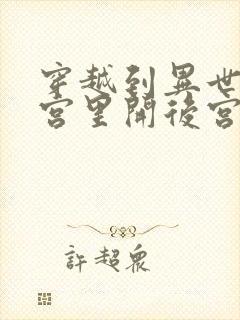 穿越到異世
宮里開後宮
許超眾